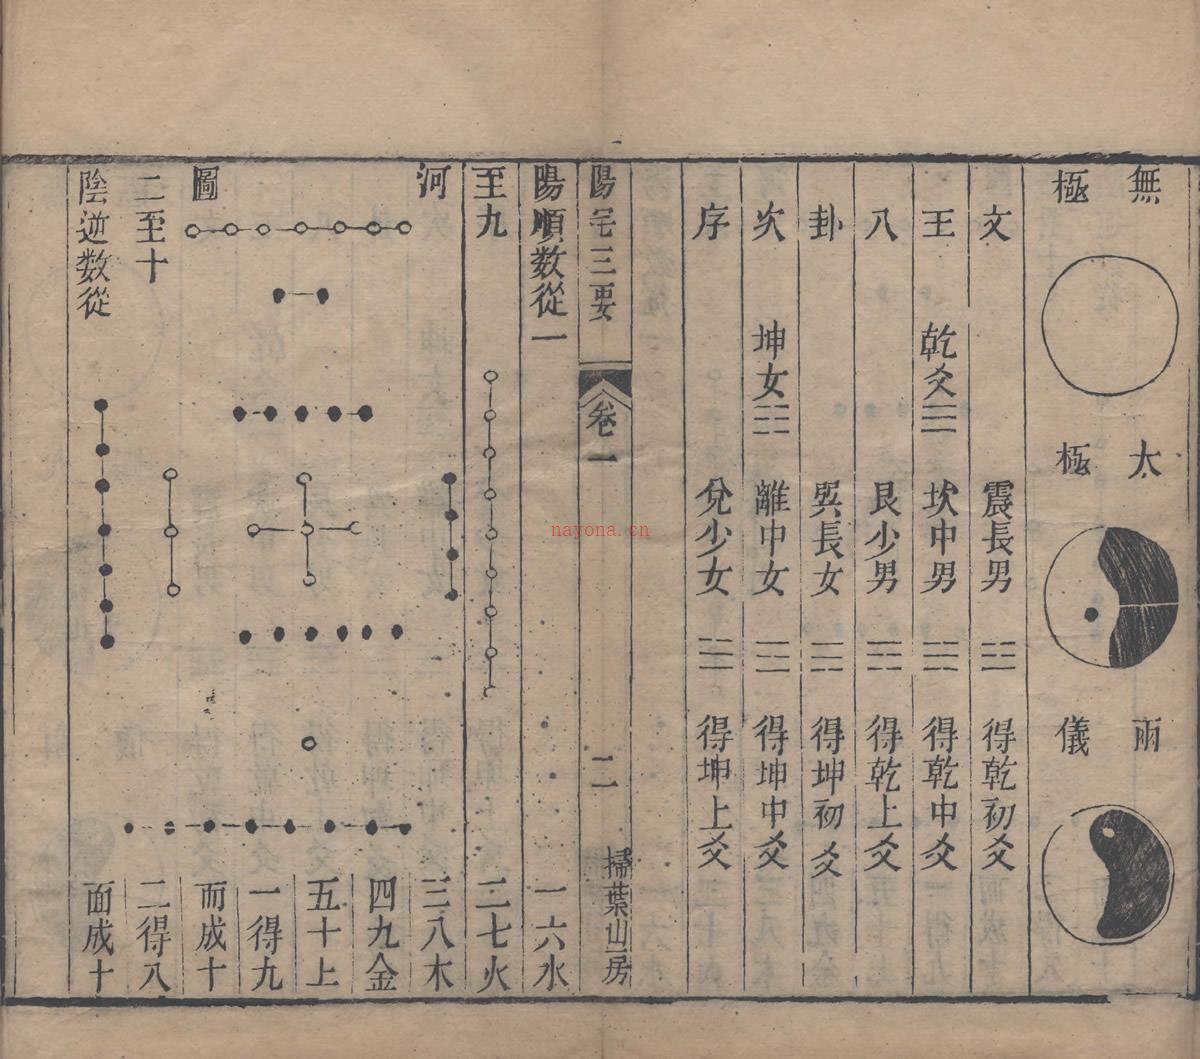 無極
太極
兩儀
文王八卦次序
乾父☰
坤女☷
震長男☳得乾初爻
坎中男☵得乾中爻
艮少男☶得乾上爻
巽長女☴得坤初爻
離中女☲得坤中爻
兌少女☱得坤上爻
陽宅三要
卷一
二
掃葉山房
陽順数從一
至九
河圖
二至十
陰逆数從
一六水
二七火
三八木
四九金
五十上
一得九
而成十
二得八
面成十
nayona.cn